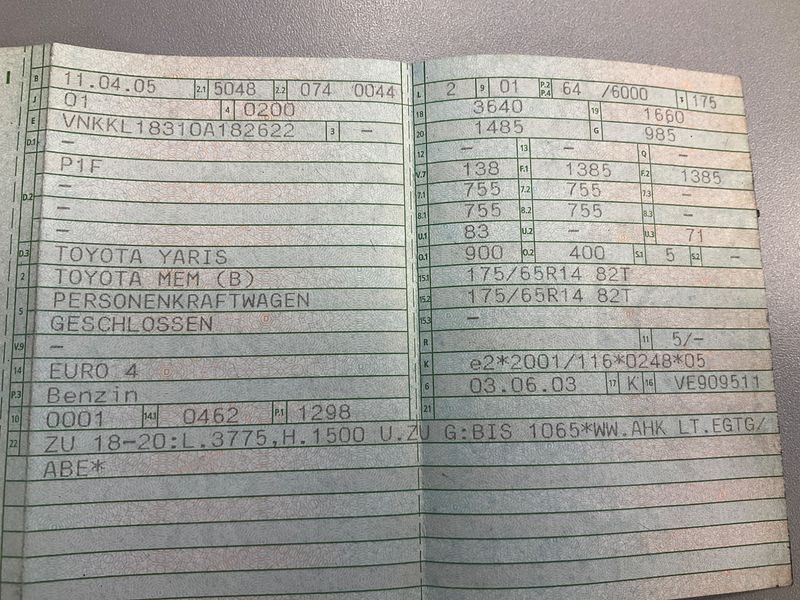 I
B 11.04.05 2.1 5048 2.2 074 0044
J 01 4 0200
E VNKKL18310A182622 3 –
D.1 –
P1F
D.2 –
–
–
D.3 TOYOTA YARIS
2 TOYOTA MEM (B)
5 PERSONENKRAFTWAGEN
GESCHLOSSEN
V.9 –
14 EURO 4
P.3 Benzin
10 0001 14.1 0462 P.1 1298
L 2 9 01 P.2 P.4 64 /6000 T 175
18 3640 19 1660
20 1485 G 985
12 – 13 – Q –
V.7 138 F.1 1385 F.2 1385
7.1 755 7.2 755 7.3 –
8.1 755 8.2 755 8.3 –
U.1 83 U.2 – U.3 71
O.1 900 O.2 400 S.1 5 S.2 –
15.1 175/65R14 82T
15.2 175/65R14 82T
15.3 –
R 11 5/–
K e2*2001/116*0248*05
6 03.06.03 17 K 16 VE909511
21
22 ZU 18-20:L.3775,H.1500 U.ZU G:BIS 1065*WW.AHK LT.EGTG/
ABE*